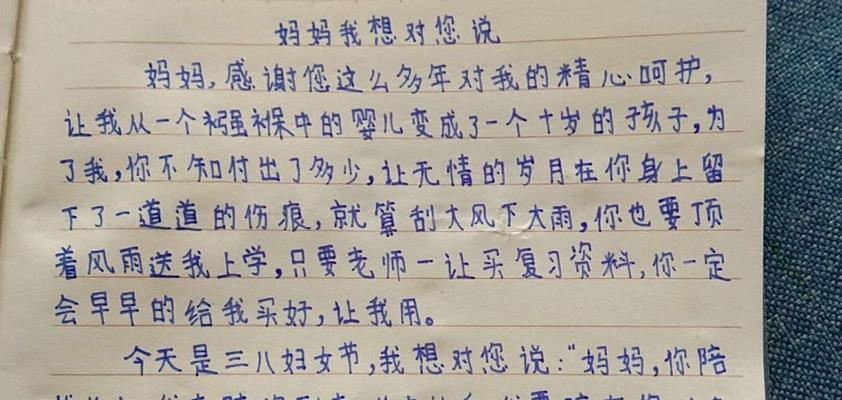 妈妈我想对您说
妈妈,感谢您这么多年对我的精心呵护,
让我从一个襁褓中的婴儿变成了一个十岁的孩子,为
了我,你不知付出了多少,让无情的岁月在你身上留
下了一道道的伤痕,就算刮大风下大雨,你也要顶
着风雨送我上学,只要老师一让买复习资料,你一定
会早早的给我买好,让我用。
今天是三八妇女节,我想对您说:“妈妈,你陪